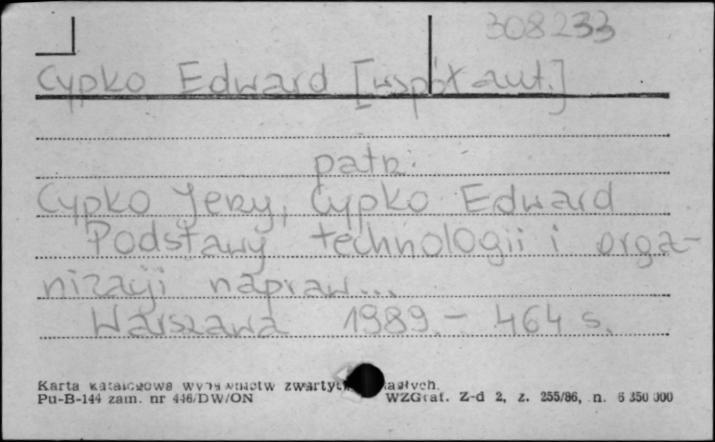 308233
Cypko Edward [współaut.]
patrz:
Cypko Jerzy, Cypko Edward
Podstawy technologii i orga-
nizacji napraw...
Warszawa 1989.- 464 s.
Karta katalogowa wydawnictw zwartych
Pu-B-144 zam. nr 446/DW/ON WZGraf. Z-d 2, z. 255/86, n. 6 350 000